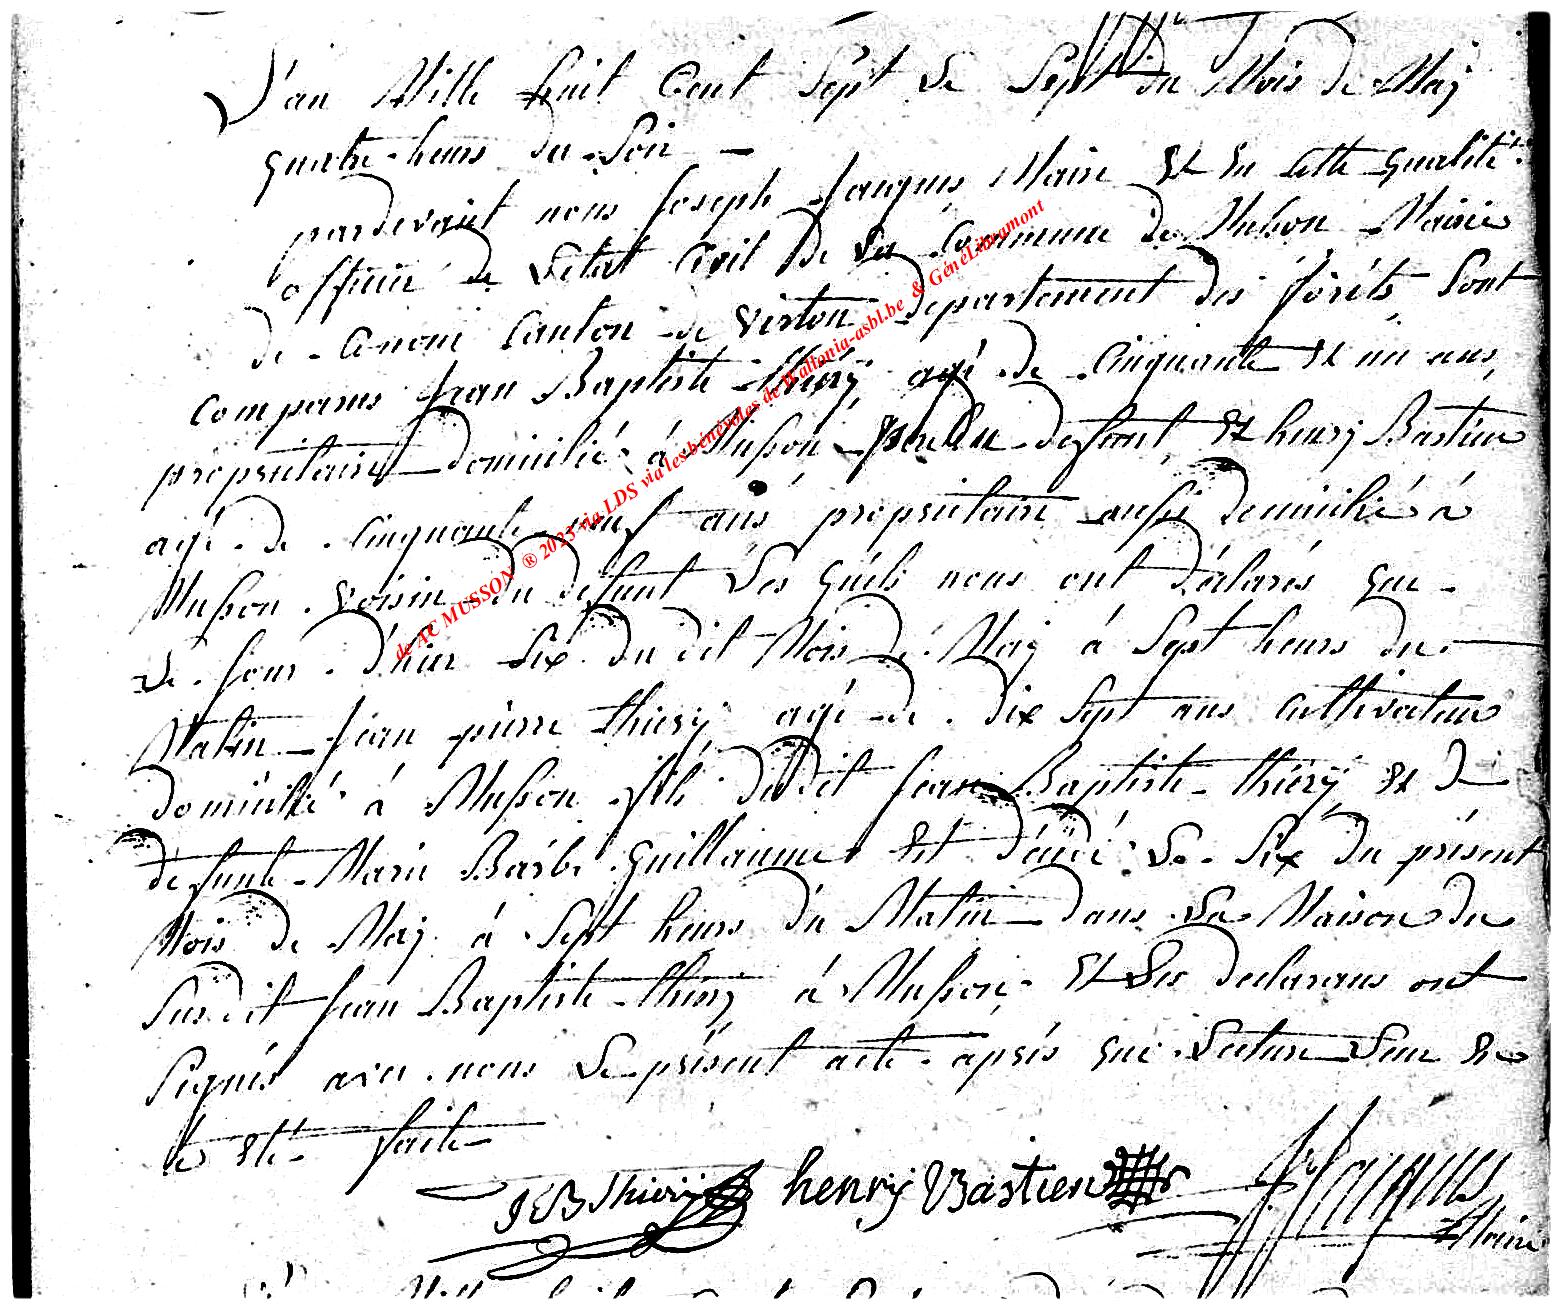 L'an Mille huit Cent Sept Le Sept du Mois de Maÿ
quatre heurs du Soir
pardevant nous Joseph Jacques Maire Et En Cette qualité
officier de Letat Civil de La Commune de Musson Mairie
de Canton de Virton departement des forêts Sont
Comparus Jean Baptiste thierÿ agé de Cinquante Et un ans
propriétaire domicilié à Musson du deffunt Et henrÿ Bastien
agé de Cinquante neuf ans propriétaire aussi domicilié à
Musson Voisin du defunt Les quels nous ont déclarés que
Le Jour d'hier Six du dit Mois de Maÿ à Sept heurs du
Matin Jean pierre thierÿ agé de dix Sept ans Cultivateur
domicilié à Musson fils dudit Jean Baptiste thierÿ Et de
defunte Marie Barbe Guillaume Est décédé Le Six du présent
Mois de Maÿ à Sept heurs du Matin dans La Maison du
Susdit Jean Baptiste thierÿ à Musson Et Les declarans ont
Signés avec nous Le présent acte après que Lecture Leur En
a Eté faite
JB Thierÿ henrÿ Bastien J Jacques
Maire
de AC MUSSON ® 2023 via LDS via les bénévoles de Wallonia-asbl.be & GénéLibramont